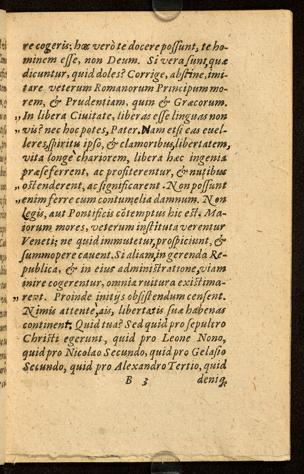 re cogeris; hæc verò te docere possunt, te ho-
minem esse, non Deum. Si vera sunt, quæ
dicuntur, quid doles? Corrige, abstine, imi-
tare veterum Romanorum Principum mo-
rem, & Prudentiam, quin & Græcorum.
„ In libera Ciuitate, liberas esse linguas non
„ vis? nec hoc potes, Pater. Nam etsi eas euel-
leres, spiritu ipso, & clamoribus, libertatem,
vita longè chariorem, libera hæc ingenia
præseferrent, ac profiterentur, & nutibus
„ ostenderent, ac significarent. Non possunt
„ enim ferre cum contumelia damnum. Non
legis, aut Pontificis cõtemptus hic est. Ma-
iorum mores, veterum instituta verentur
Veneti; ne quid immutetur, prospiciunt, &
summopere cauent. Si aliam, in gerenda Re-
publica, & in eius administratione, viam
inire cogerentur, omnia ruitura existima-
„ rent. Proinde initijs obsistendum censent.
Nimis attente, ais, libertatis suæ habenas
continent. Quid tua? Sed quid pro sepulcro
Christi egerunt, quid pro Leone Nono,
quid pro Nicolao Secundo, quid pro Gelasio
Secundo, quid pro Alexandro Tertio, quid
B 3 deniq,